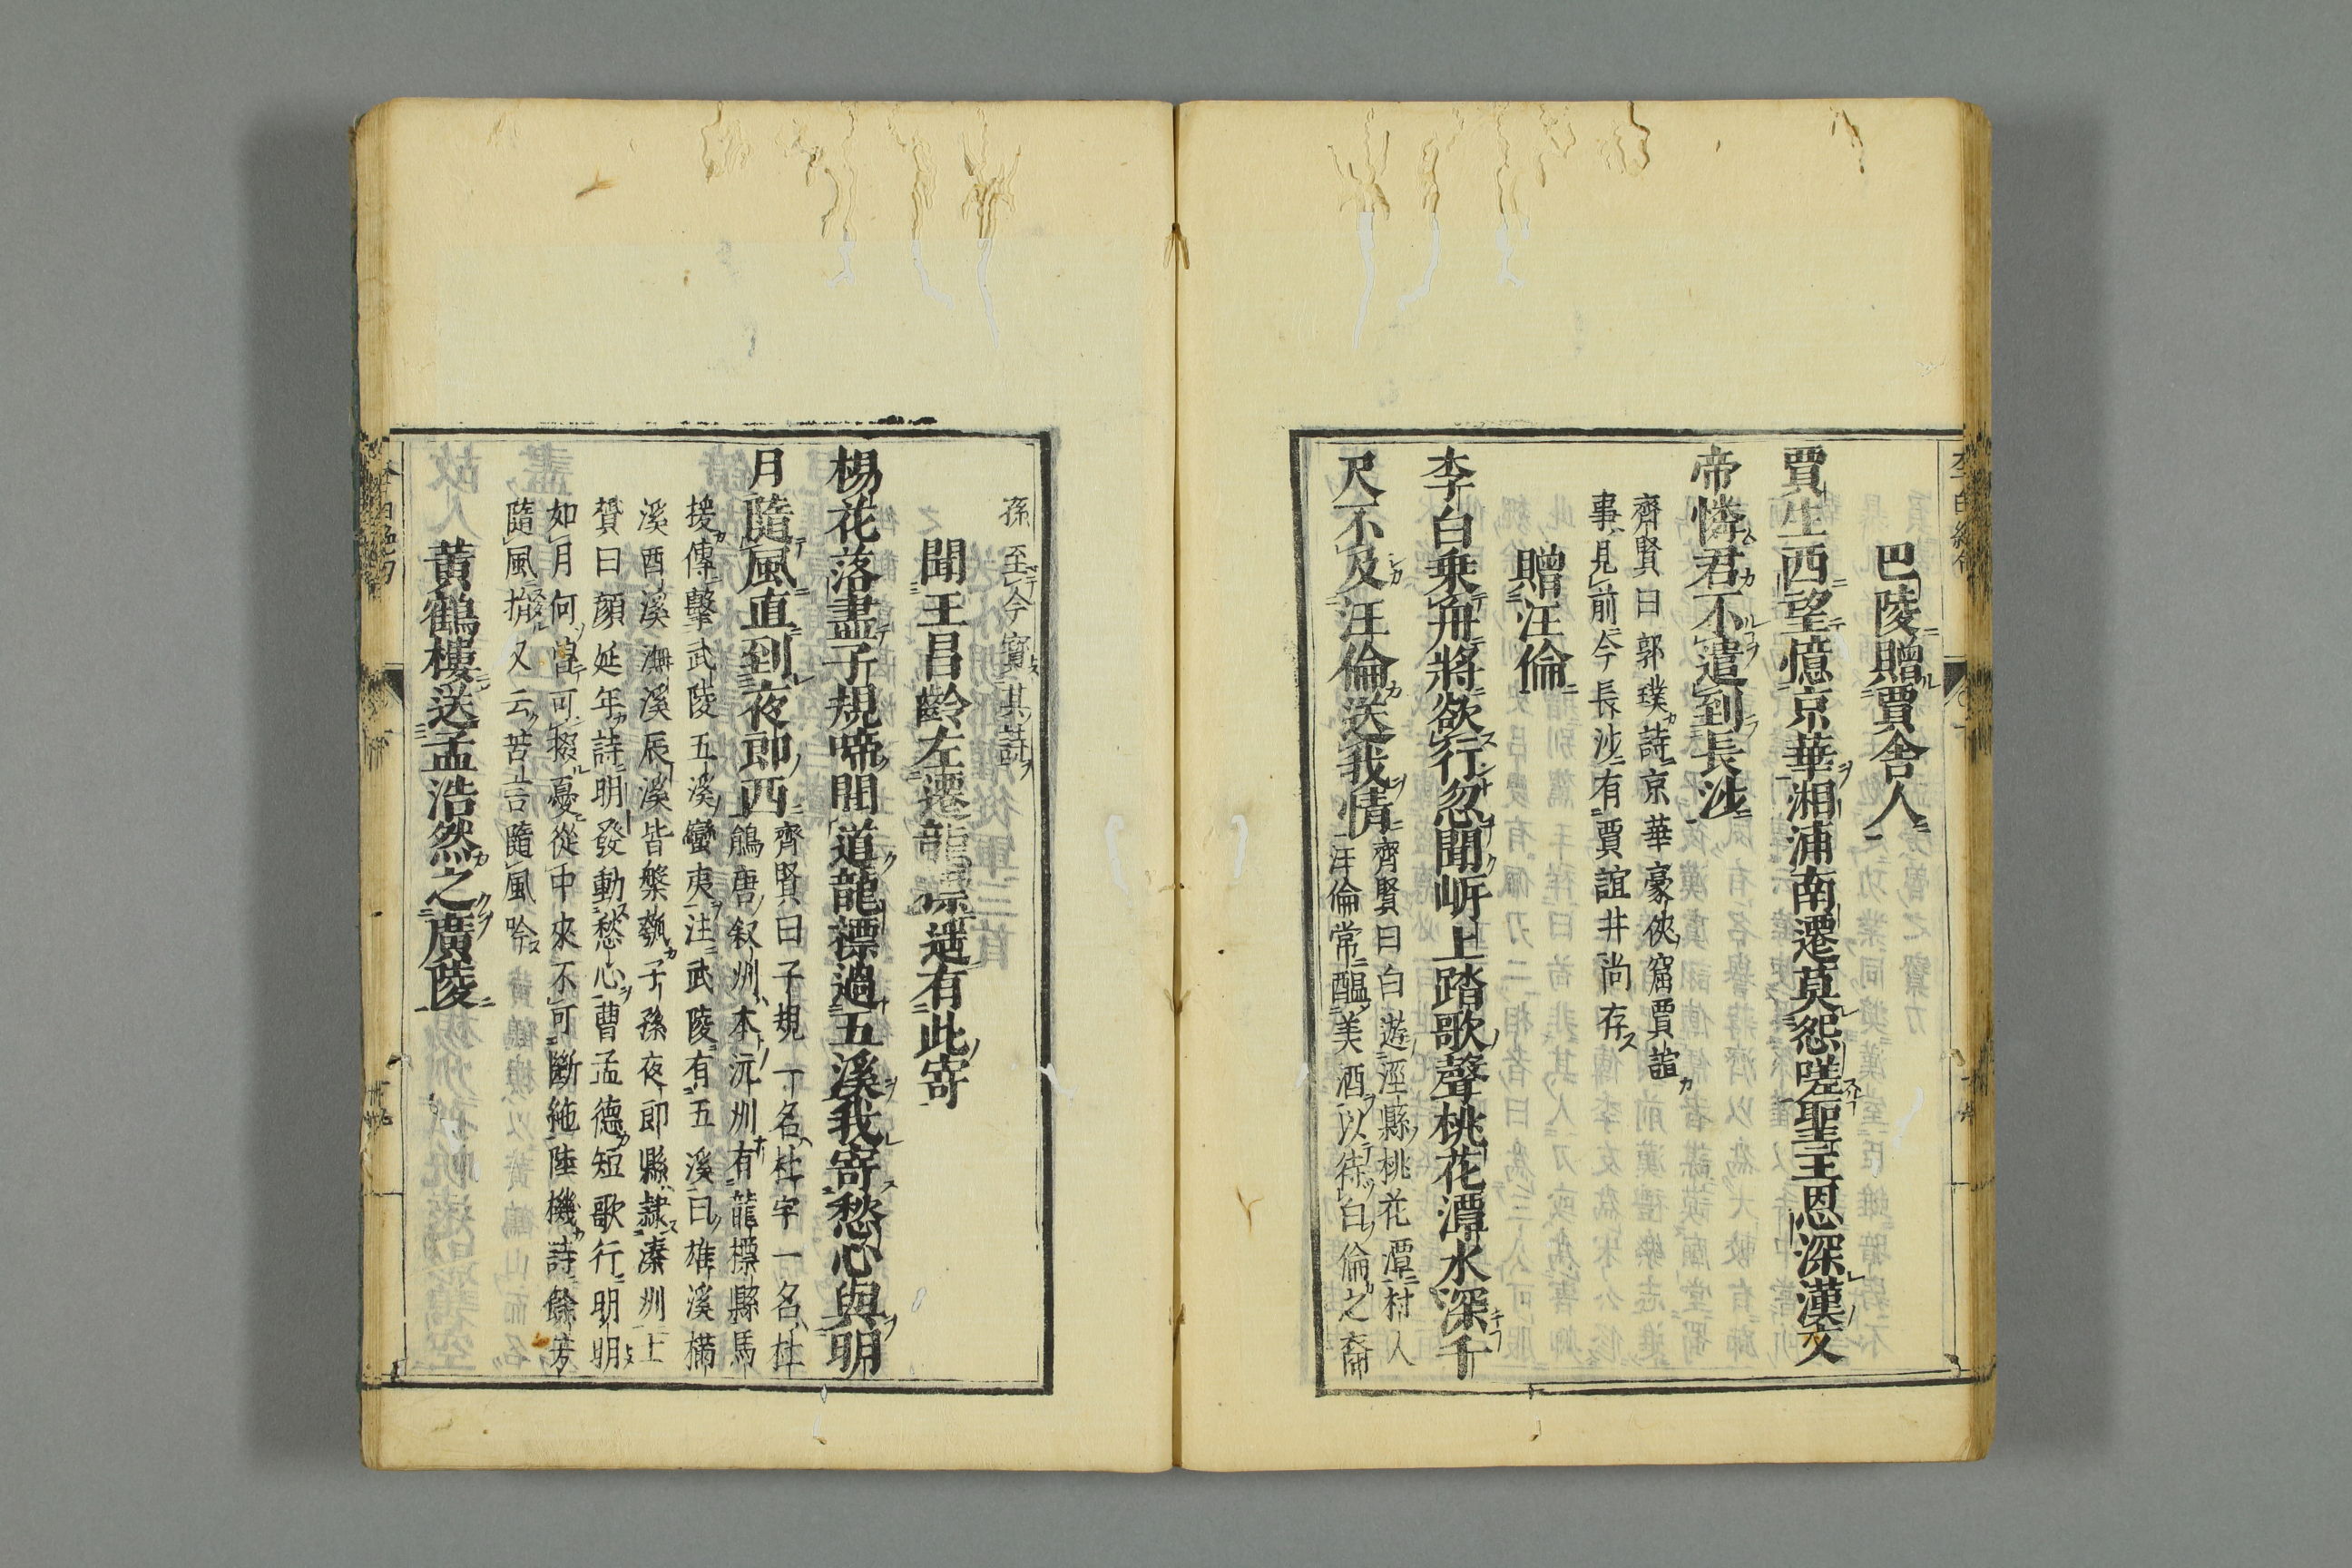 巴陵贈賈舍人
賈生西望憶京華湘浦南遷莫怨嗟聖主恩深漢文
帝憐君不遣到長沙
齊賢曰郭璞詩京華豪俠窟賈誼
事見前今長沙有賈誼井尚存
贈汪倫
李白乗舟將欲行忽聞岍上踏歌聲桃花潭水深千
尺不及汪倫送我情
齊賢曰白遊涇縣桃花潭村人
汪倫常醞美酒以待白倫之裔
孫至今寳其詩
聞王昌齡左遷龍標遥有此寄
楊花落盡子規啼聞道龍標過五溪我寄愁心與明
月隨風直到夜郎西
齊賢曰子規一名杜宇一名杜
鵑唐叙州本沅州有龍標縣馬
援傳擊武陵五溪蠻夷注武陵有五溪曰雄溪樠
溪酉溪潕溪辰溪皆槃瓠子孫夜郎縣隷溱州上
贇曰顔延年詩明發動愁心曹孟德短歌行明明
如月何當可掇憂從中來不可斷絁陸機詩餘芳
隨風捐又云苦言隨風吟
黄鶴樓送孟浩然之廣陵